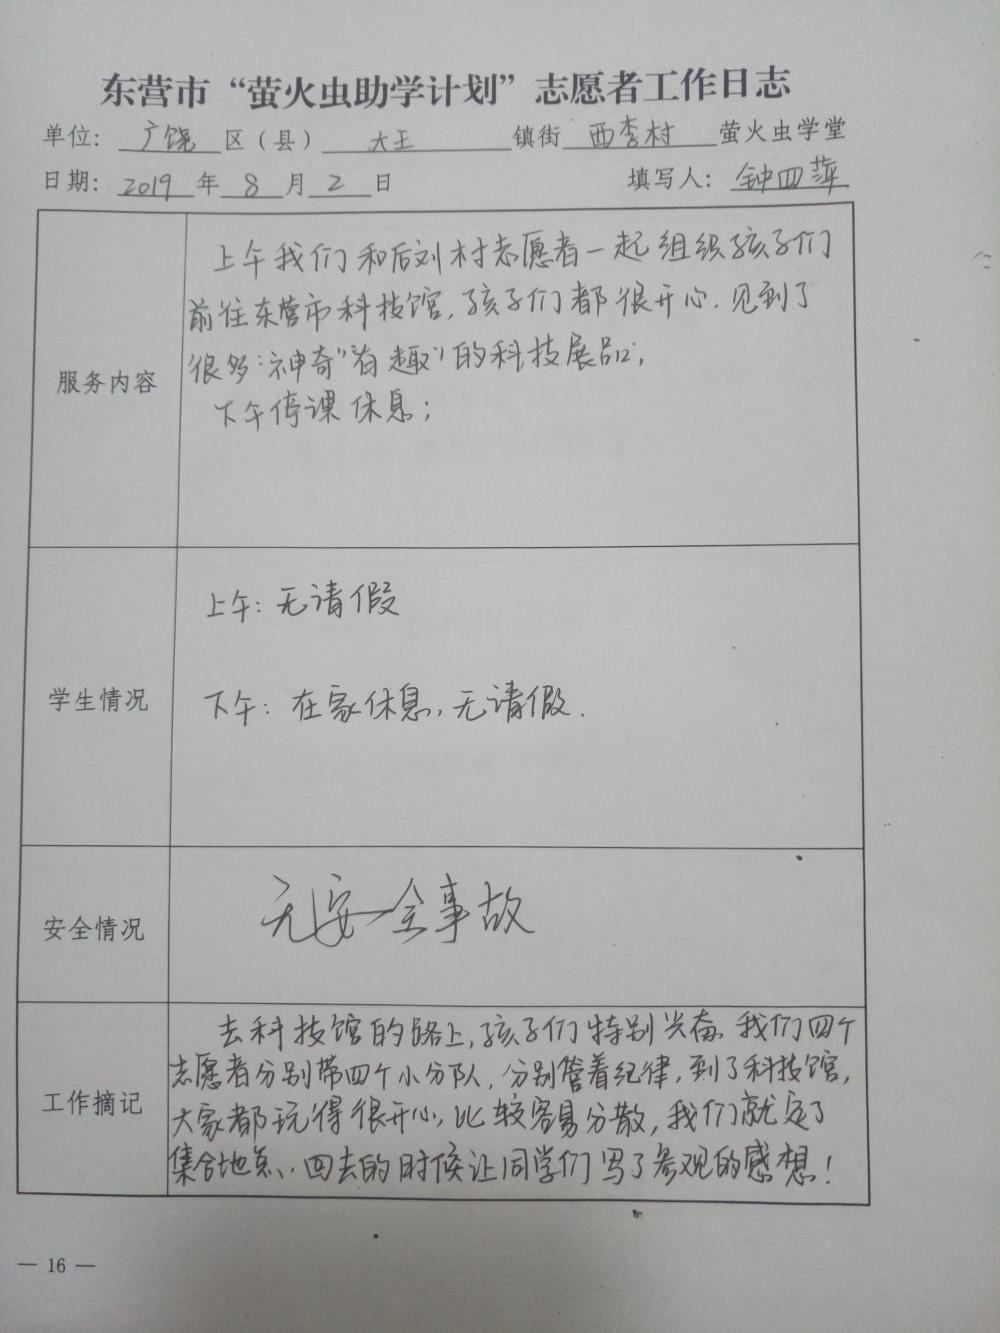 东营市“萤火虫助学计划”志愿者工作日志
单位：广饶区（县）大王镇街西李村萤火虫学堂
日期：2019年8月2日 填写人：钟四萍
服务内容
上午我们和后刘村志愿者一起组织孩子们
前往东营市科技馆，孩子们都很开心，见到了
很多“神奇”“有趣”的科技展品；
下午停课休息；
学生情况
上午：无请假
下午：在家休息，无请假.
安全情况
无安全事故
工作摘记
去科技馆的路上，孩子们特别兴奋，我们四个
志愿者分别带四个小分队，分别管着纪律，到了科技馆，
大家都玩得很开心，比较容易分散，我们就定了
集合地点，回去的时候让同学们写了参观的感想！
— 16 —